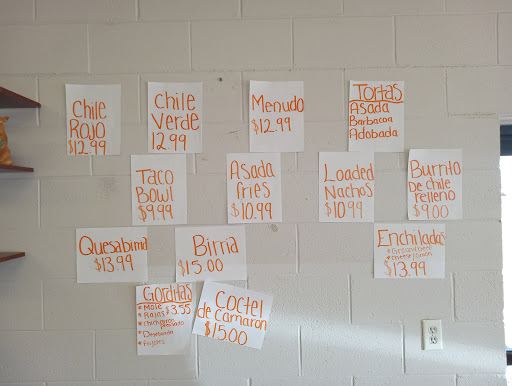 Chile
Rojo
$12.99
Chile
Verde
12.99
Menudo
$12.99
Tortas
Asada
Barbacoa
Adobada
Taco
Bowl
$9.99
Asada
fries
$10.99
Loaded
Nachos
$10.99
Burrito
De chile
relleno
$9.00
Quesabirria
$13.99
Birria
$15.00
Enchiladas
* Ground beef
* cheese/onion
$13.99
Gorditas
* Mole $3.55
* Rajas
* chicharron
* Deshebrada
* Frijoles
Coctel
de camaron
$15.00